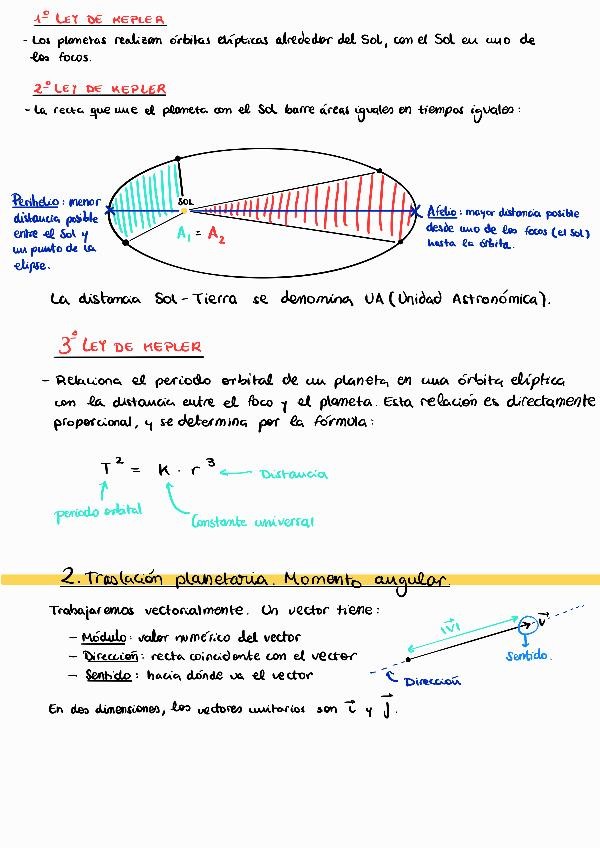 1º LEY DE KEPLER
- Los planetas realizan órbitas elípticas alrededor del Sol, con el Sol en uno de
los focos.
2º LEY DE KEPLER
- La recta que une el planeta con el Sol barre áreas iguales en tiempos iguales:
SOL
A₁ = A₂
Perihelio: menor
distancia posible
entre el Sol y
un punto de la
elipse.
Afelio: mayor distancia posible
desde uno de los focos (el sol)
hasta la órbita.
La distancia Sol - Tierra se denomina UA (Unidad Astronómica).
3º LEY DE KEPLER
- Relaciona el periodo orbital de un planeta en una órbita elíptica
con la distancia entre el foco y el planeta. Esta relación es directamente
proporcional, y se determina por la fórmula:
T² = K · r³ ← Distancia
periodo orbital
Constante universal
2. Traslación planetaria. Momento angular.
Trabajaremos vectorialmente. Un vector tiene:
- Módulo: valor numérico del vector
- Dirección: recta coincidente con el vector
- Sentido: hacia dónde va el vector
|v⃗|
v⃗
Sentido.
Dirección
En dos dimensiones, los vectores unitarios son i⃗ y j⃗.